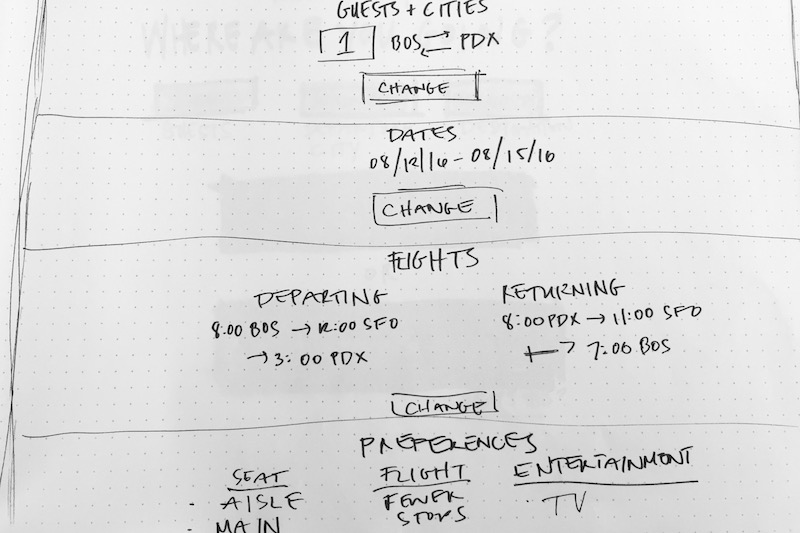 GUESTS + CITIES
1 BOS ⇄ PDX
CHANGE
DATES
08/12/16 - 08/15/16
CHANGE
FLIGHTS
DEPARTING
8:00 BOS → 12:00 SFO
→ 3:00 PDX
RETURNING
8:00 PDX → 11:00 SFO
→ 7:00 BOS
CHANGE
PREFERENCES
SEAT
· AISLE
· MAIN
FLIGHT
FEWER
STOPS
ENTERTAINMENT
TV